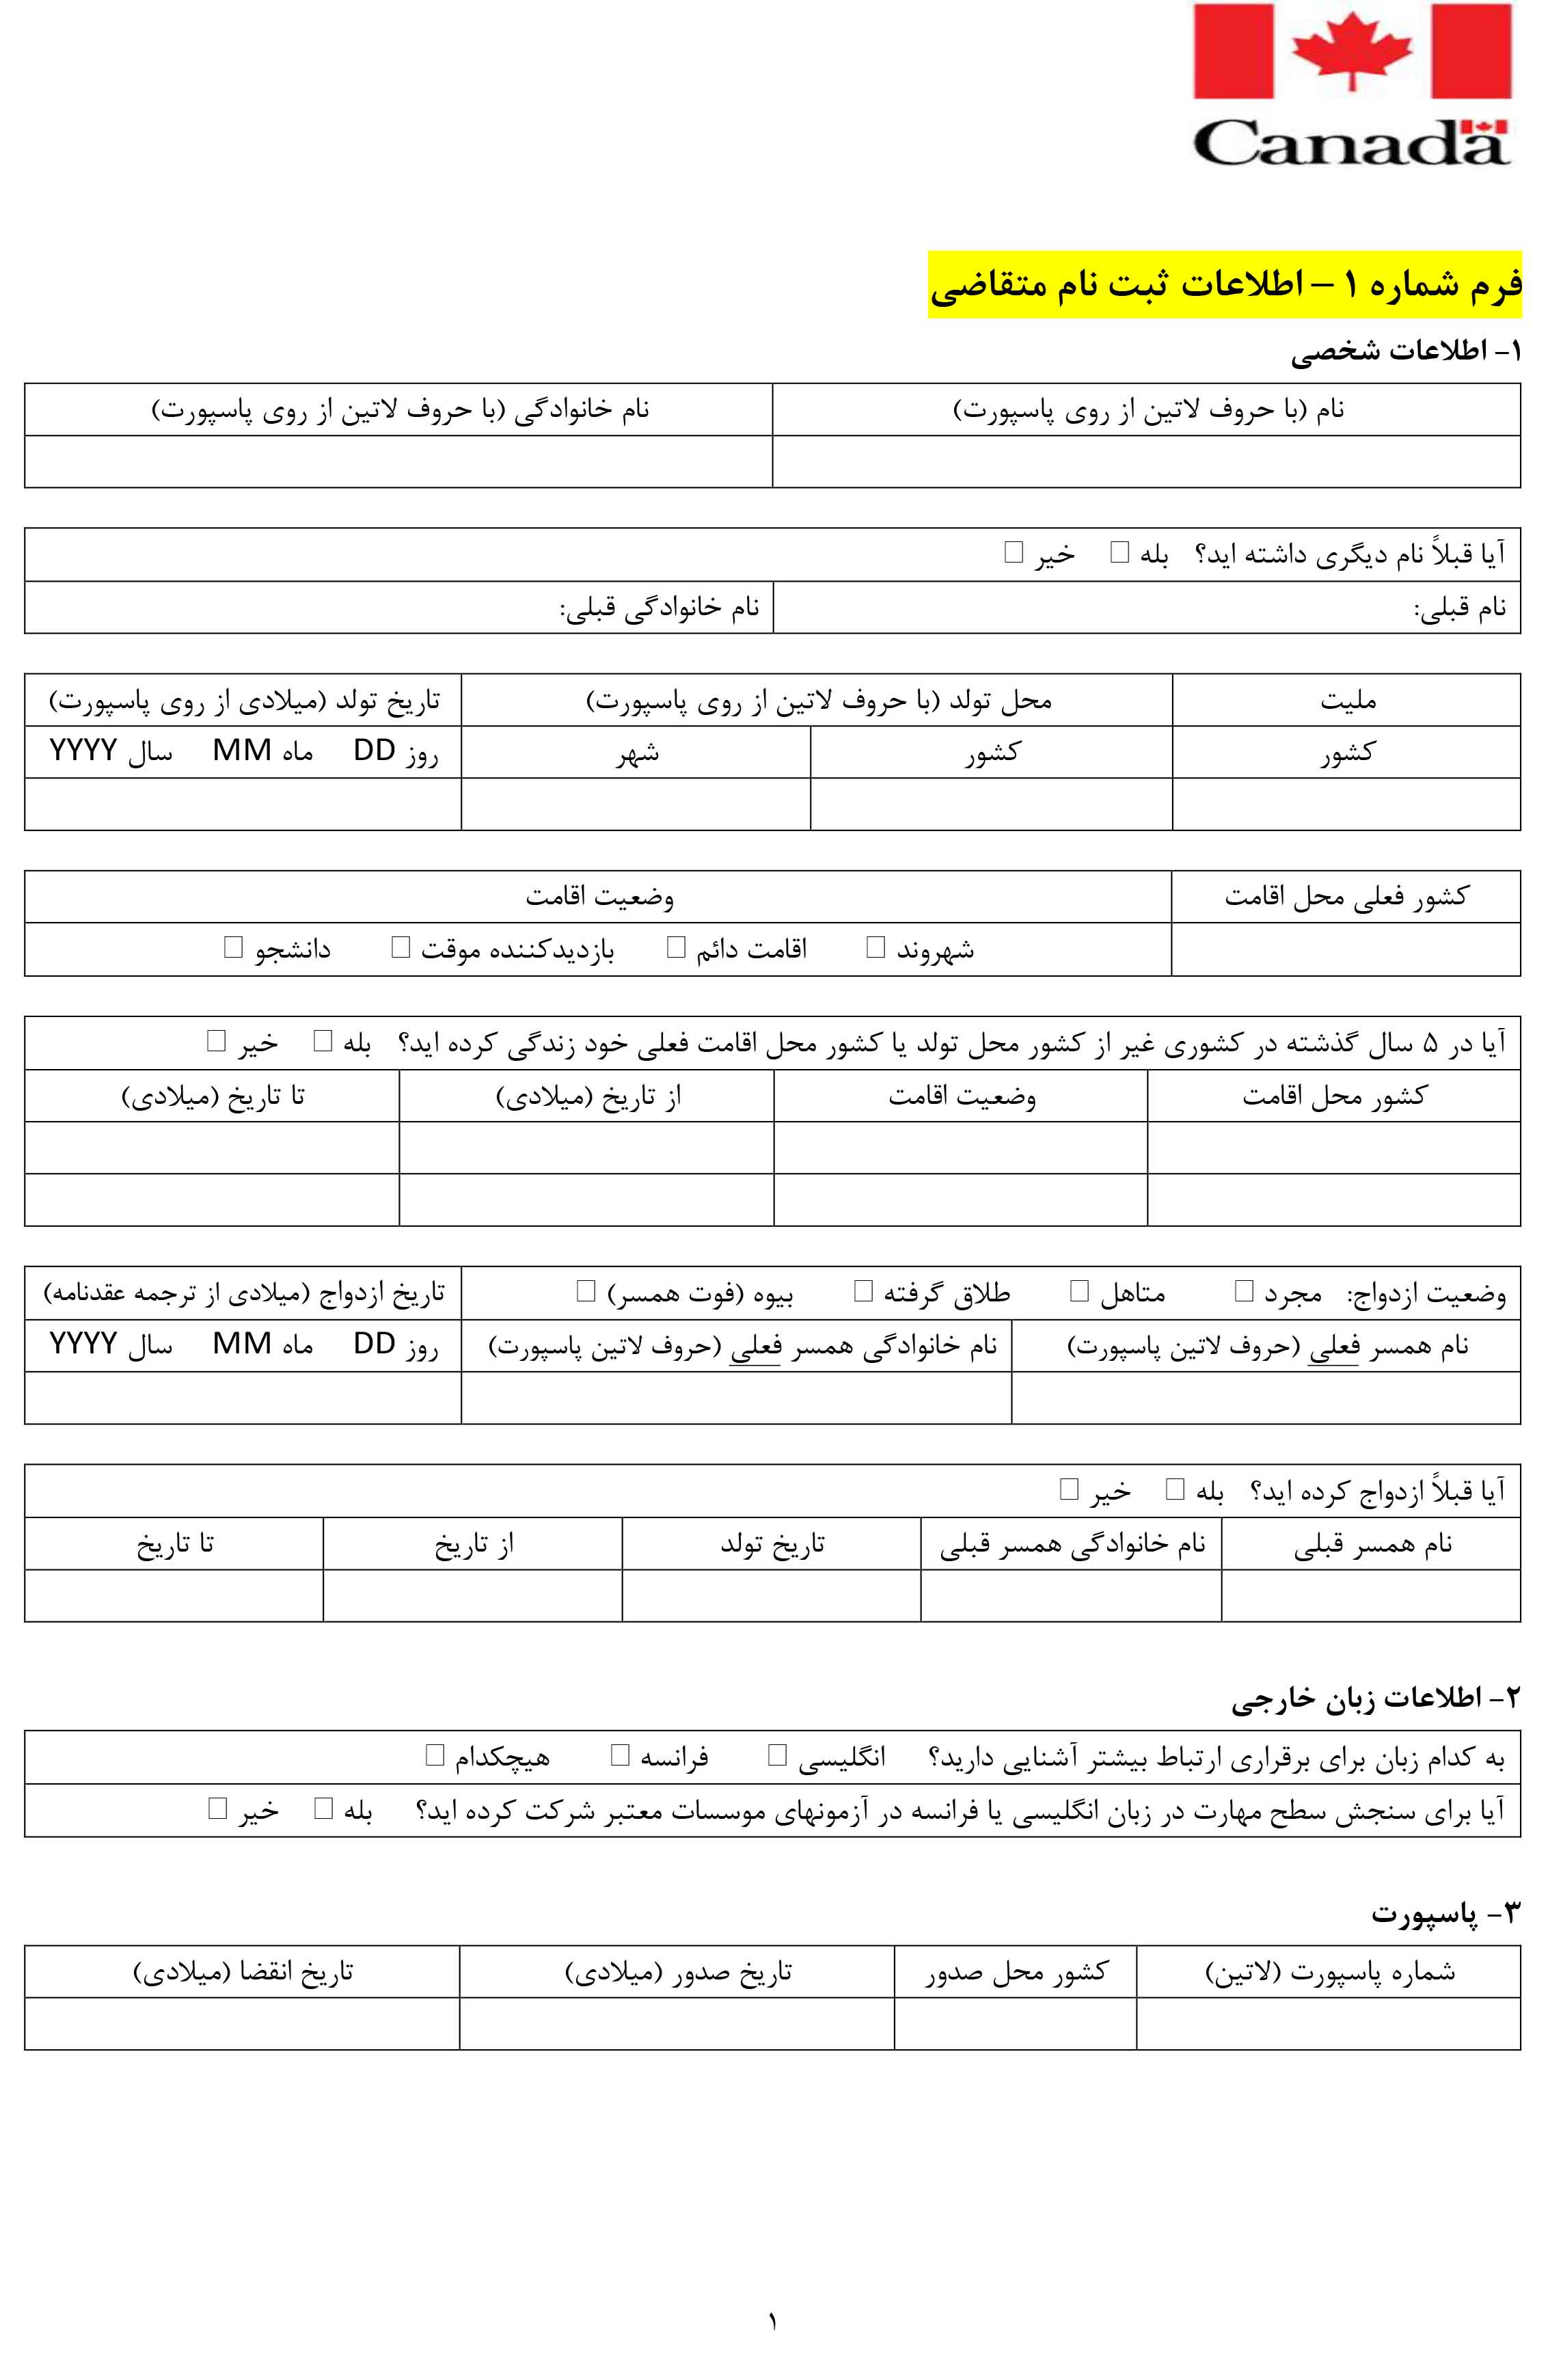 Canada
فرم شماره ۱ – اطلاعات ثبت نام متقاضی
۱- اطلاعات شخصی
نام (با حروف لاتین از روی پاسپورت) نام خانوادگی (با حروف لاتین از روی پاسپورت)
آیا قبلاً نام دیگری داشته اید؟ بله □ خیر □
نام قبلی: نام خانوادگی قبلی:
ملیت محل تولد (با حروف لاتین از روی پاسپورت) تاریخ تولد (میلادی از روی پاسپورت)
کشور کشور شهر روز DD ماه MM سال YYYY
کشور فعلی محل اقامت وضعیت اقامت
شهروند □ اقامت دائم □ بازدیدکننده موقت □ دانشجو □
آیا در ۵ سال گذشته در کشوری غیر از کشور محل تولد یا کشور محل اقامت فعلی خود زندگی کرده اید؟ بله □ خیر □
کشور محل اقامت وضعیت اقامت از تاریخ (میلادی) تا تاریخ (میلادی)
وضعیت ازدواج: مجرد □ متاهل □ طلاق گرفته □ بیوه (فوت همسر) □ تاریخ ازدواج (میلادی از ترجمه عقدنامه)
نام همسر فعلی (حروف لاتین پاسپورت) نام خانوادگی همسر فعلی (حروف لاتین پاسپورت) روز DD ماه MM سال YYYY
آیا قبلاً ازدواج کرده اید؟ بله □ خیر □
نام همسر قبلی نام خانوادگی همسر قبلی تاریخ تولد از تاریخ تا تاریخ
۲- اطلاعات زبان خارجی
به کدام زبان برای برقراری ارتباط بیشتر آشنایی دارید؟ انگلیسی □ فرانسه □ هیچکدام □
آیا برای سنجش سطح مهارت در زبان انگلیسی یا فرانسه در آزمونهای موسسات معتبر شرکت کرده اید؟ بله □ خیر □
۳- پاسپورت
شماره پاسپورت (لاتین) کشور محل صدور تاریخ صدور (میلادی) تاریخ انقضا (میلادی)
۱